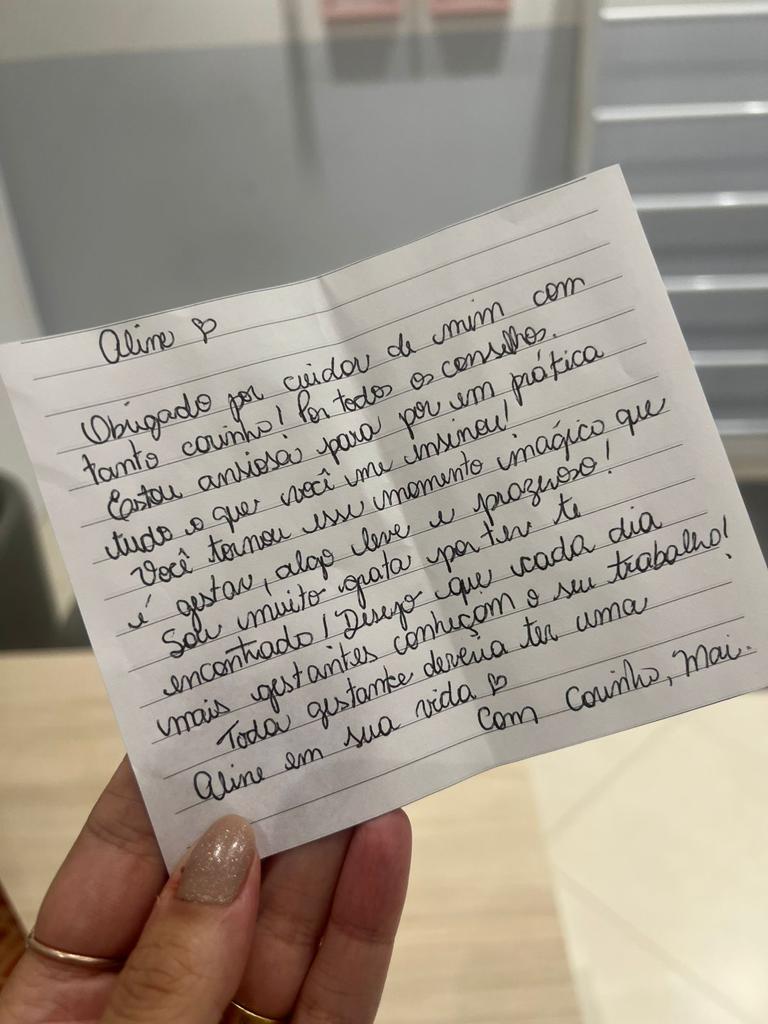 Aline ♡
Obrigado por cuidar de mim com
tanto carinho! Por todos os conselhos.
Estou ansiosa para por em prática
tudo o que você me ensinou!
Você tornou esse momento mágico que
é gestar, algo leve e prazeroso!
Sou muito grata por ter te
encontrado! Desejo que cada dia
mais gestantes conheçam o seu trabalho!
Toda gestante deveria ter uma
Aline em sua vida ♡
Com Carinho, Mai.